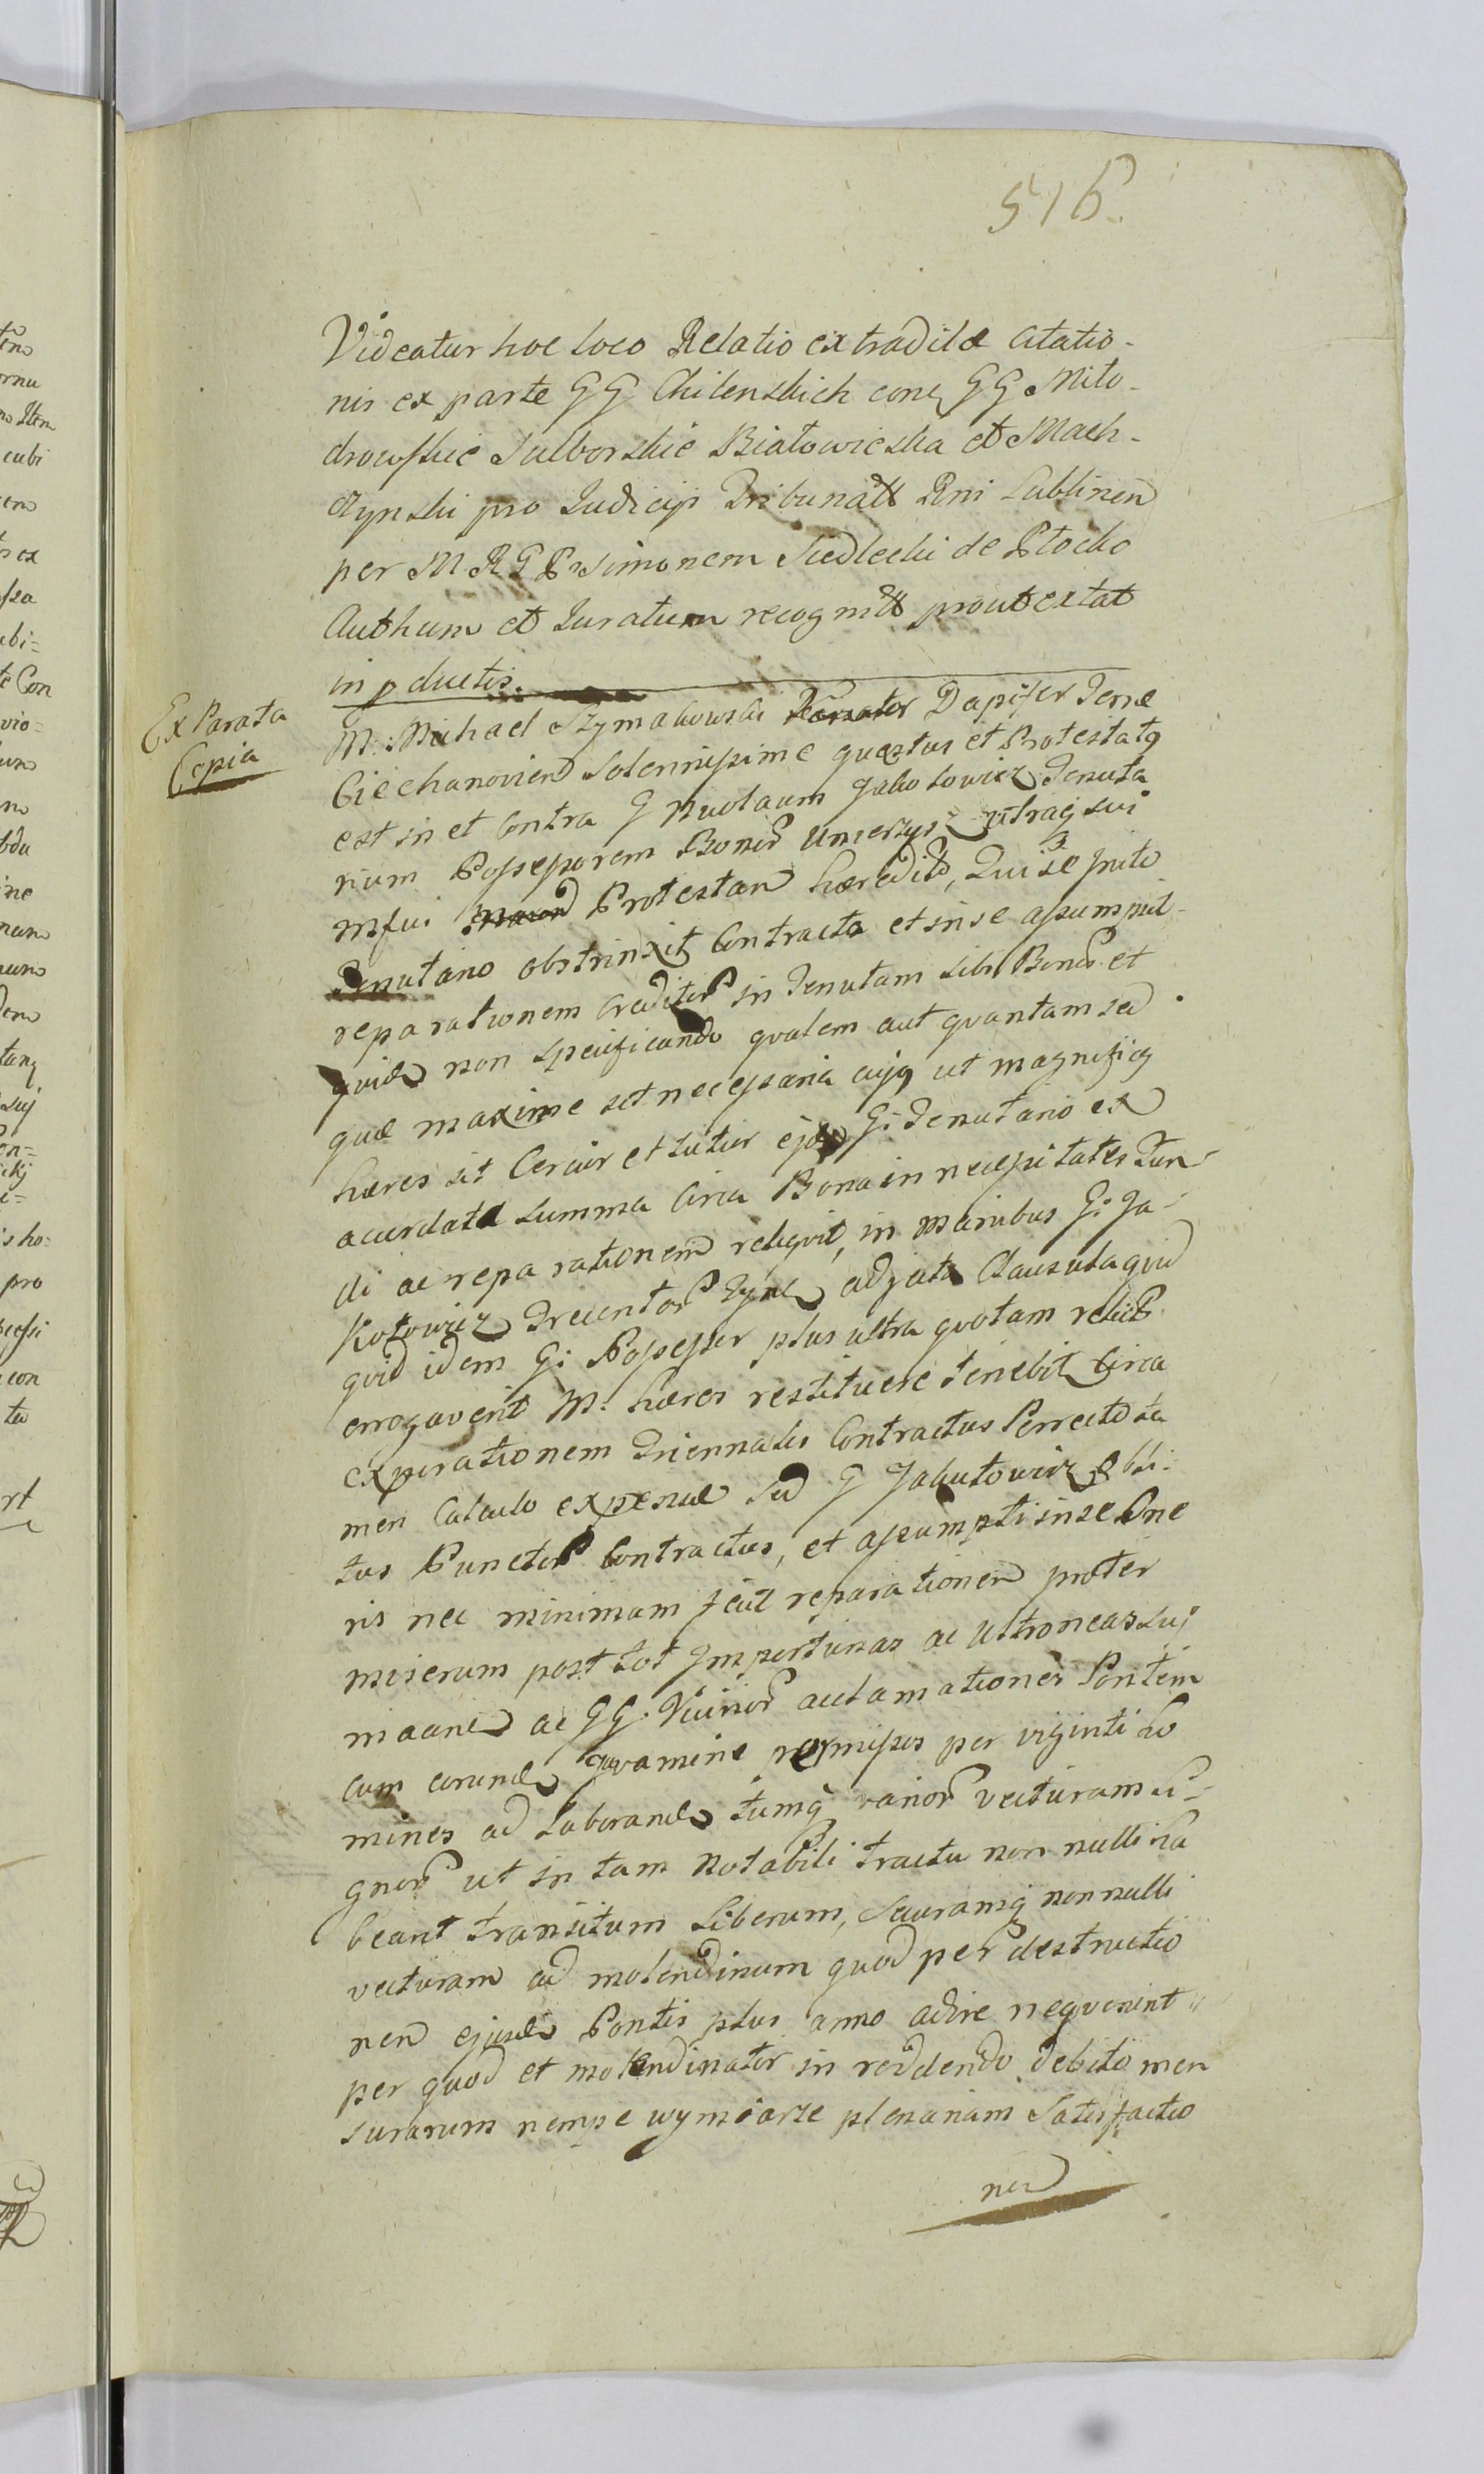 516.
Videatur hoc loco Relatio extraditæ Citatio-
nis ex parte GG Chilenskich conq GG Miło-
drowskie Sulborskie Białowieska et Mach-
czynski pro Judicijs Tribunałłł Rni Lublinen
per M. R G P Simonem Siedlecki de Płocko
Authum et Juratum recognitt prout extat
in pductis.
Ex Parata
Copia
M. Michael Szymakowski Dapifer Terræ
Ciechanovien Solennissime questus et Protestatq
est in et Contra G Nicolaum Jakotowicz Tenuta
rium Possessorem Bonor Unierzys utraq sui
mfui Protestan hæredito, Qui se Inito
Tenutario obstrinxit Contractu et in se assumpsit
reparationem Creditor in Tenutam sibi Bonor et
quid non specificando qualem aut quantam sed
quæ maxime sit necessaria cujq ut magnificq
hæres sit Cercior et tutior ejd G: Tenutario ex
acurdata Summa Circa Bona in necessitates Fun-
di ac reparationem reliqvit, in manibus G: Ja-
kotowicz Trecentor Tynf adjecta Clausula qvid
qvid idem G: Possessor plus ultra qvotam relict
errogaverit M: hæres restituere tenebit Circa
expirationem Triennalis Contractus Porrecto ta
men Calculo expensæ Sed G Jakutowicz obli-
tus Punctor Contractus, et assumpti in se One
ris nec minimam fecit reparationem præter
miserum post tot Importunas ac Ultroneas sui
maane ac GG. Vicinor aclamationes Pontem
Cum eorund gravamine promissos per viginti Ho
mines ad Laborand tumq varior vecturam li-
gnor ut in tam notabili tractu non nulli ha
beant transitum Liberum, Securamq non nulli
vecturam ad molendinum quod per destructio
nen ejusd Pontis plus anno adire neqverint
per quod et molendinator in reddendo debito men
surarum nempe wymiarze plenariam Satisfactio
nen